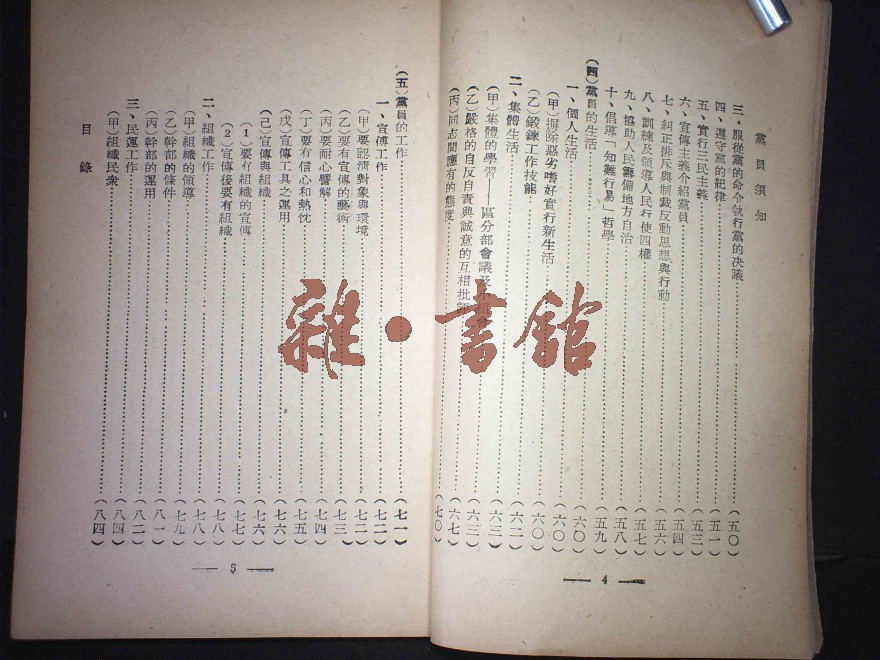 黨員須知
三、服從黨的命令執行黨的決議……(五〇)
四、遵守黨的紀律……(五一)
五、實行三民主義……(五三)
六、宣傳主義介紹黨員……(五四)
七、糾正排斥與制裁反動思想與行動……(五六)
八、訓練及領導人民行使四權……(五七)
九、協助人民籌備地方自治……(五八)
十、倡導「知難行易」哲學……(五九)
(四)黨員的生活……(六〇)
一、個人生活……(六〇)
(甲)摒除惡劣嗜好實行新生活……(六〇)
(乙)鍛鍊工作技能……(六〇)
二、集體生活……(六二)
(甲)集體的學習——區分部會議及小組會……(六三)
(乙)嚴格的自反自責與誠意的互相批評……(六三)
(丙)同志間應有的態度……(六七)
(七〇)
— 4 —
(五)黨員的工作……(七一)
一、宣傳工作……(七二)
(甲)要認清對象與環境……(七二)
(乙)要有宣傳的藝術……(七三)
(丙)要耐心譬解……(七四)
(丁)要有信心和熱忱……(七五)
(戊)宣傳工具之運用……(七六)
(己)宣傳與組織……(七六)
(1)要有組織的宣傳……(七七)
(2)宣傳後要有組織……(七八)
二、組織工作……(七八)
(甲)組織的領導……(七九)
(乙)幹部的條件……(八一)
(丙)幹部的運用……(八二)
三、民運工作……(八四)
(甲)組織民衆……(八四)
目錄
— 5 —
雜·書館